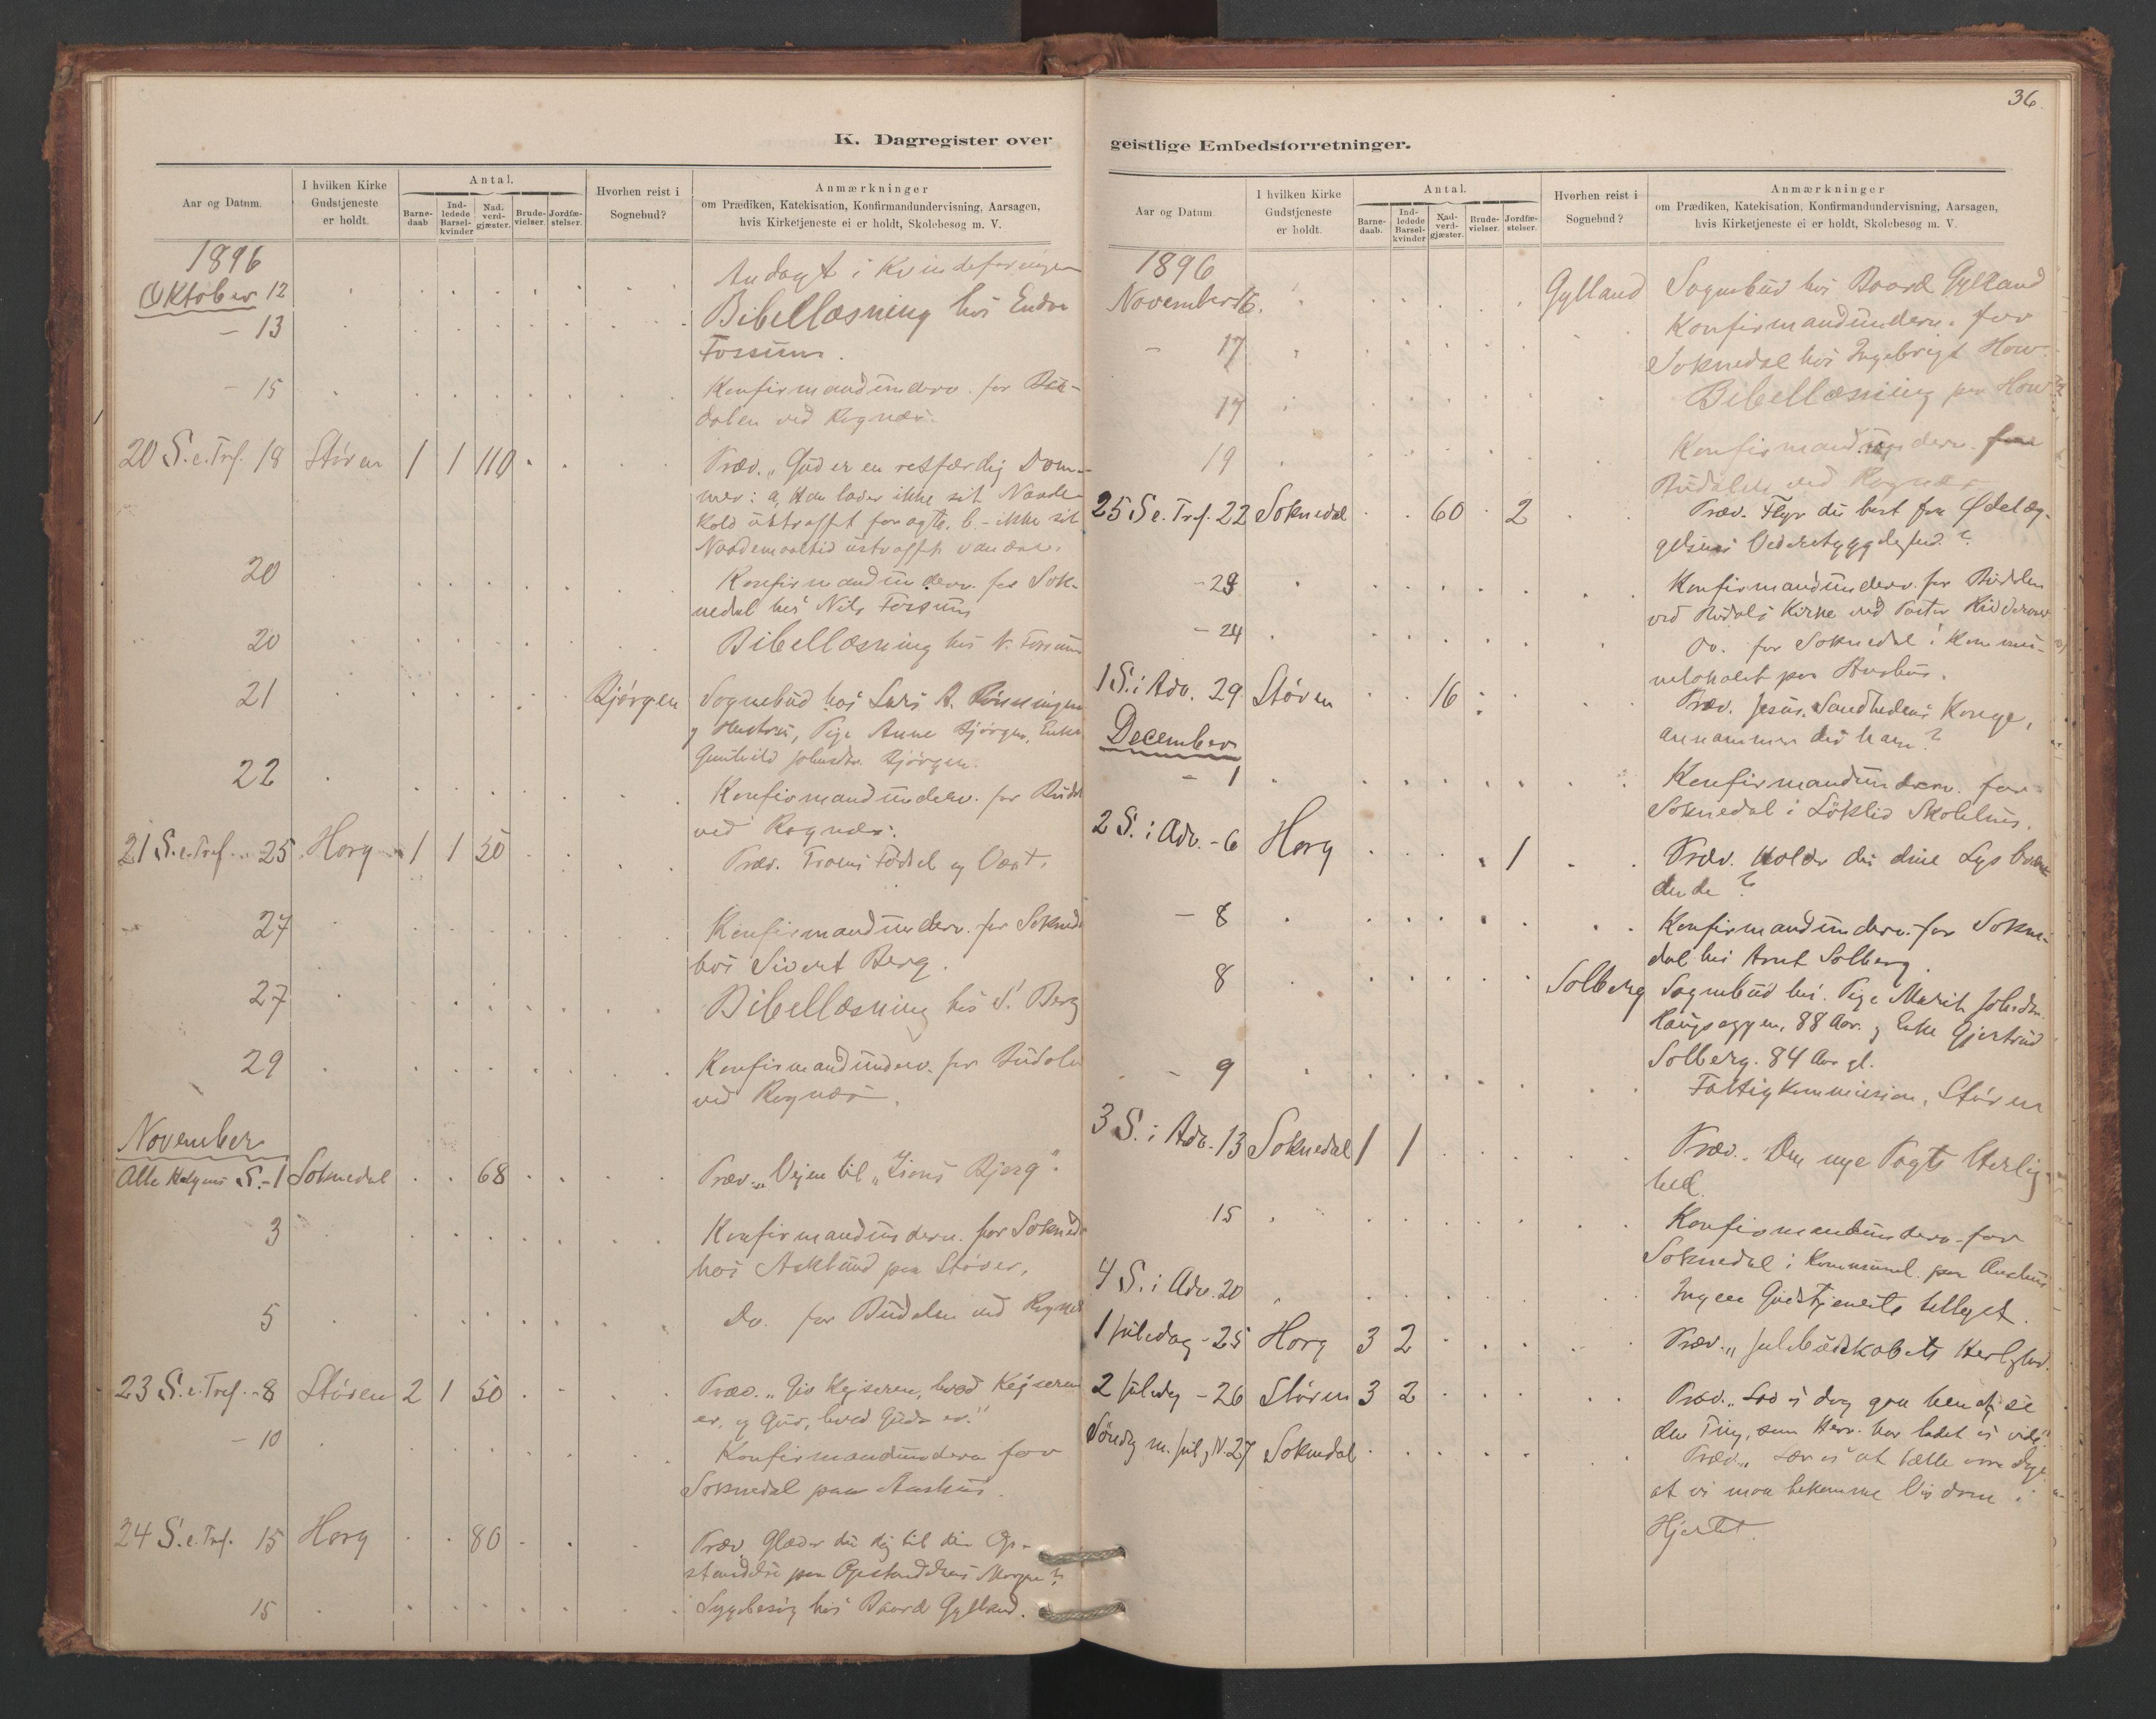 K. Dagregister over
Aar og Datum.
I hvilken Kirke Gudstjeneste er holdt.
Antal.
Barne-daab
Ind-ledede Barsel-kvinder
Nad-verd-gjæster.
Brude-vielser.
Jordfæ-stelser.
Hvorhen reist i Sognebud?
Anmærkninger
om Prædiken, Katekisation, Konfirmandundervisning, Aarsagen,
hvis Kirketjeneste ei er holdt, Skolebesøg m. V.
1896
Oktober 12 Andagt i Kvindeforeningen
- 13 Bibellæsning hos Endre
Fossum.
- 15 Konfirmandunderv. for Bu-
dalen ved Rognæs.
20 S. e. Tref. 18 Støren 1 1 110 Præd. „Gud er en retfærdig Dom-
mer: a, Han lader ikke sit Naade-
kald ustraffet foragte. b. - ikke sit
Naademaaltid ustraffet vanære.
20 Konfirmandunderv. for Sok-
nedal hos Nils Fossum
20 Bibellæsning hos N. Fossum
21 Bjørgen Sognebud hos Lars A. Rønningen
og Hustru, Pige Anne Bjørgen, Enke
Gunhild Johnsdr. Bjørgen.
22 Konfirmandunderv. for Budal
ved Rognæs.
21 S. e. Tref. - 25 Horg 1 1 50 Præd. Troens Fødsel og Vext.
27 Konfirmandunderv. for Soknedal
hos Sivert Berg.
27 Bibellæsning hos S. Berg
29 Konfirmandunderv. for Budalen
ved Rognæs.
November
Alle Helgens S. - 1 Soknedal 68 Præd. „Vejen til „Zions Bjerg".
3 Konfirmandunderv. for Soknedal
hos Asklund paa Støren.
5 Do. for Budalen ved Rognæs
23 S. e. Tref. - 8 Støren 2 1 50 Præd. „Giv Kejseren, hvad Kejserens
er, og Gud, hvad Guds er."
- 10 Konfirmandunderv. for
Soknedal paa Aashus.
24 S. e. Tref. 15 Horg 80 Præd. Glæder du dig til din Op-
standelse paa Opstandelsens Morgen?
15 Sygebesøg hos Baard Gylland.
36.
geistlige Embedsforretninger.
Aar og Datum.
I hvilken Kirke Gudstjeneste er holdt.
Antal.
Barne-daab.
Ind-ledede Barsel-kvinder
Nad-verd-gjæster.
Brude-vielser.
Jordfæ-stelser.
Hvorhen reist i Sognebud?
Anmærkninger
om Prædiken, Katekisation, Konfirmandundervisning, Aarsagen,
hvis Kirketjeneste ei er holdt, Skolebesøg m. V.
1896
November 16. Gylland Sognebud hos Baard Gylland
- 17 Konfirmandunderv. for
Soknedal hos Ingebrigt Hov.
17 Bibellæsning paa Hov
19 Konfirmandunderv. for
Budalen ved Rognæs
25 S. e. Tref. 22 Soknedal 60 2 Præd. Flyr du bort fra Ødelæg-
gelsens Vederstyggelighed?
- 23 Konfirmandunderv. for Budalen
ved Budals Kirke ved Pastor
- 24 Do. for Soknedal i Kommu-
nelokalet paa Aashus.
1 S. i Adv. 29 Støren 16 Præd. Jesus, Sandhedens Konge,
annammer du ham?
December
- 1 Konfirmandunderv. for
Soknedal i Løklid Skolehus.
2 S. i Adv. - 6 Horg 1 Præd. Holder du dine Lys bræn-
dende?
- 8 Konfirmandunderv. for Sokne-
dal hos Arnt Solberg.
8 Solberg Sognebud hos Pige Marit Johnsdr.
Haugseggen, 88 Aar. og Enke Gjertrud
Solberg. 84 Aar gl.
- 9 Fattigkommission, Støren
3 S. i Adv. 13 Soknedal 1 1 Præd. Den nye Pagts Herlig-
hed.
15 Konfirmandunderv. for
Soknedal i Kommunel. paa Aashus
4 S. i Adv. 20 Ingen Gudstjeneste tillyst.
1 Juledag - 25 Horg 3 2 Præd. „Julebudskabets Herlighed.
2 Juledag - 26 Støren 3 2 Præd. „Lad os dog gaa hen og se
den Ting, som Herr. har ladet os vide"
Søndag m. Jul og N. 27 Soknedal Præd. „Lær os at tælle vore Dage,
at vi maa bekomme Visdom i
Hjertet.